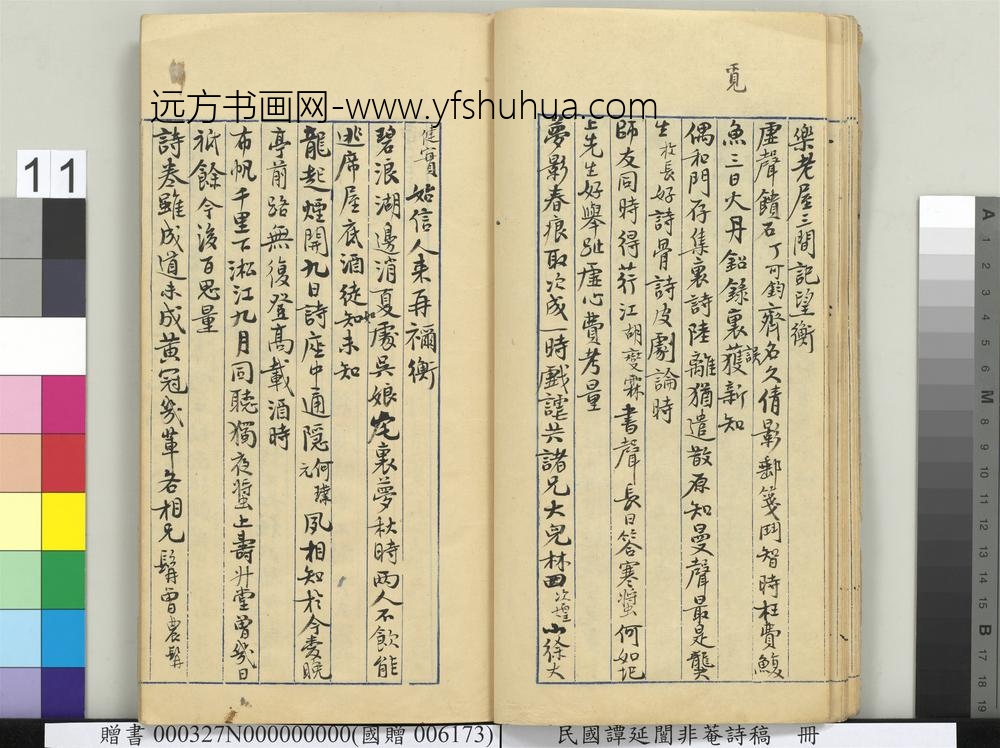 覓
樂老屋三間記望衡
虛聲饋石丁可鈞齊名久倩影郵箋鬥智時枉費鰒
魚三日火丹鉛錄裏獲新知
誤
偶和門存集裏詩陸離猶遣散原知曼聲最是龔
生枚長好詩骨詩皮劇論時
師友同時得荇江湖變霖書聲長日答寒螿何如圯
上先生好舉趾虛心費考量
夢影春痕取次成一時戲謔共諸兄大兒林田次煌小徐大
健實始信人來再禰衡
碧浪湖邊消夏處吳娘裏夢秋時兩人不飲能
逃席屋底酒徒知未知
如
龍起煙開九日詩座中通隱何璞元夙相知於今麥晚
亭前路無復登高載酒時
布帆千里下淞江九月同聽獨夜螿上壽升堂曾幾日
祇餘今後百思量
詩卷雖成道未成黃冠幾輩各相兄髯曾農髯
远方书画网-www.yfshuhua.com
11
A 1 2 3 4 5 6 M 8 9 10 11 12 13 14 15 B 17 18 19
贈書 000327N000000000(國贈 006173)
民國譚延闓非菴詩稿 冊